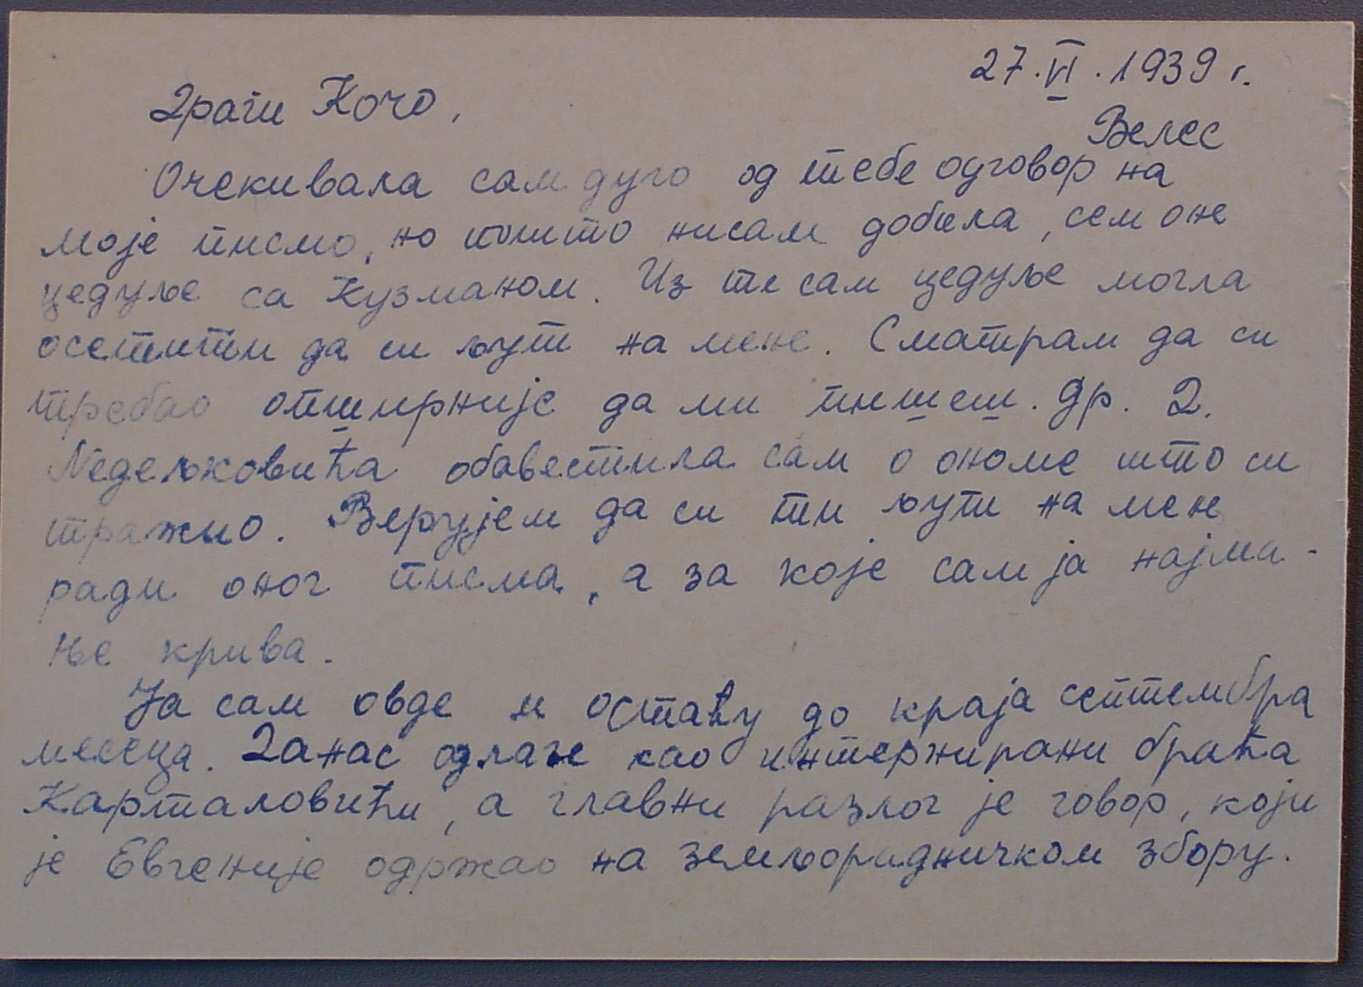 27.VI.1939 г.
Велес
Драги Кочо,
Очекивала сам дуго од тебе одговор на
моје писмо, но пошто нисам добила, сем оне
цедуље са Кузманом. Из те сам цедуље могла
осетити да си љут на мене. Сматрам да си
требао опширније да ми пишеш. Др. Д.
Недељковића обавестила сам о ономе што си
тражио. Верујем да си ти љут на мен
ради оног писма, а за које сам ја најма-
ње крива.
Ја сам овде и остаћу до краја септембра
месеца. Данас одлазе као интернирани браћа
Карталовићи, а главни разлог је говор, који
је Евгеније одржао на земљорадничком збору.